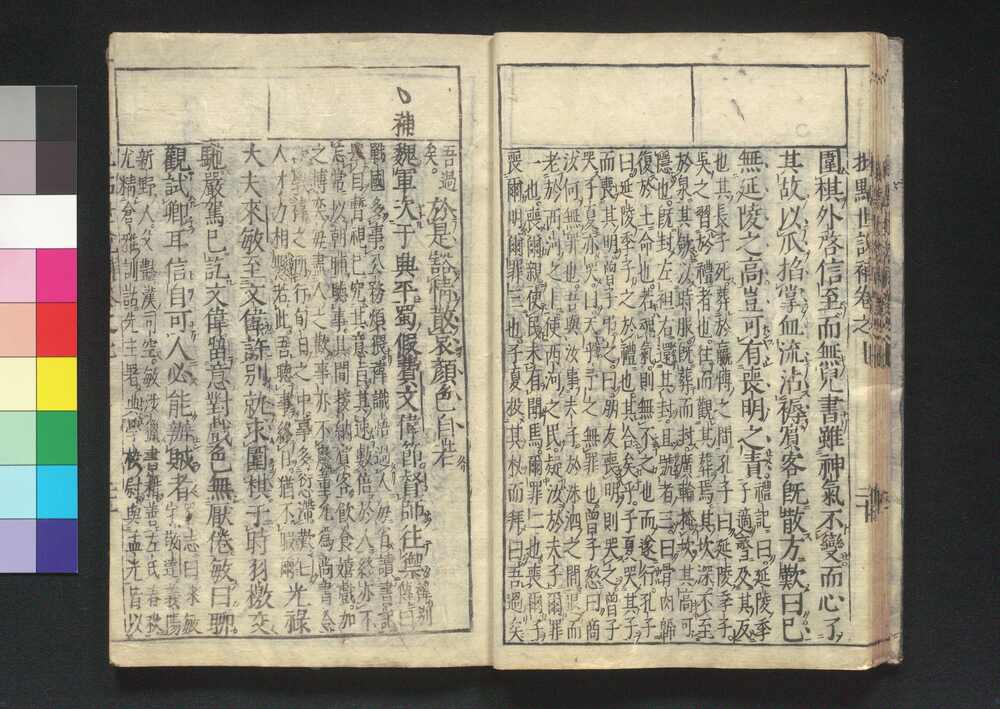 批點世說補卷之
圍棋外啓信至而無兒書雖神氣不變而心了
其故以爪掐掌血流沾褥賓客既散方歎曰已
無延陵之高豈可有喪明之責禮記曰延陵季子適齊及其反
也其長子死葬於嬴博之間孔子曰延陵季子
吳之習於禮者也往而觀其葬焉其坎深不至
於泉其斂以時服既葬而封廣輪揜坎其高可
隱也既封左袒右還其封且號者三曰骨肉歸
復於土命也若魂氣則無不之也而遂行孔子
曰延陵季子之於禮也其合矣乎子夏哭其子
而喪其明曾子弔之曰朋友喪明則哭之曾子
哭子夏亦哭曰天乎予之無罪也曾子怒曰商
汝何無罪吾與汝事夫子於洙泗之間退而
老於西河之上使西河之民疑汝於夫子爾罪
一也喪爾親使民未有聞焉爾罪二也喪爾子
喪爾明爾罪三也子夏投其杖而拜曰吾過矣
吾過矣於是豁情散哀顏色自若
補魏軍次于興平蜀假費文偉節督師往禦禕別傳曰
戰國多事公務煩猥禕識悟過人每省讀書記
舉目暫視已究其意旨其速數倍於人終亦不
忘常以朝晡聽事其間接納賓客飲食嬉戲加
之博奕每盡人之歡事亦不廢董允為尚書令
禕之所行旬日之中事多愆滯歎曰
人才力相懸若此吾聽事終日猶不暇爾光祿
大夫來敏至文偉許別就求圍棋于時羽檄交
馳嚴駕已訖文偉留意對戲色無厭倦敏曰聊
觀試卿耳信自可人必能辦賊者志曰來敏字敬達義陽
新野人父艷漢司空敏涉獵書籍善左氏春秋
尤精倉雅訓詁先主署典學校尉與孟光皆以